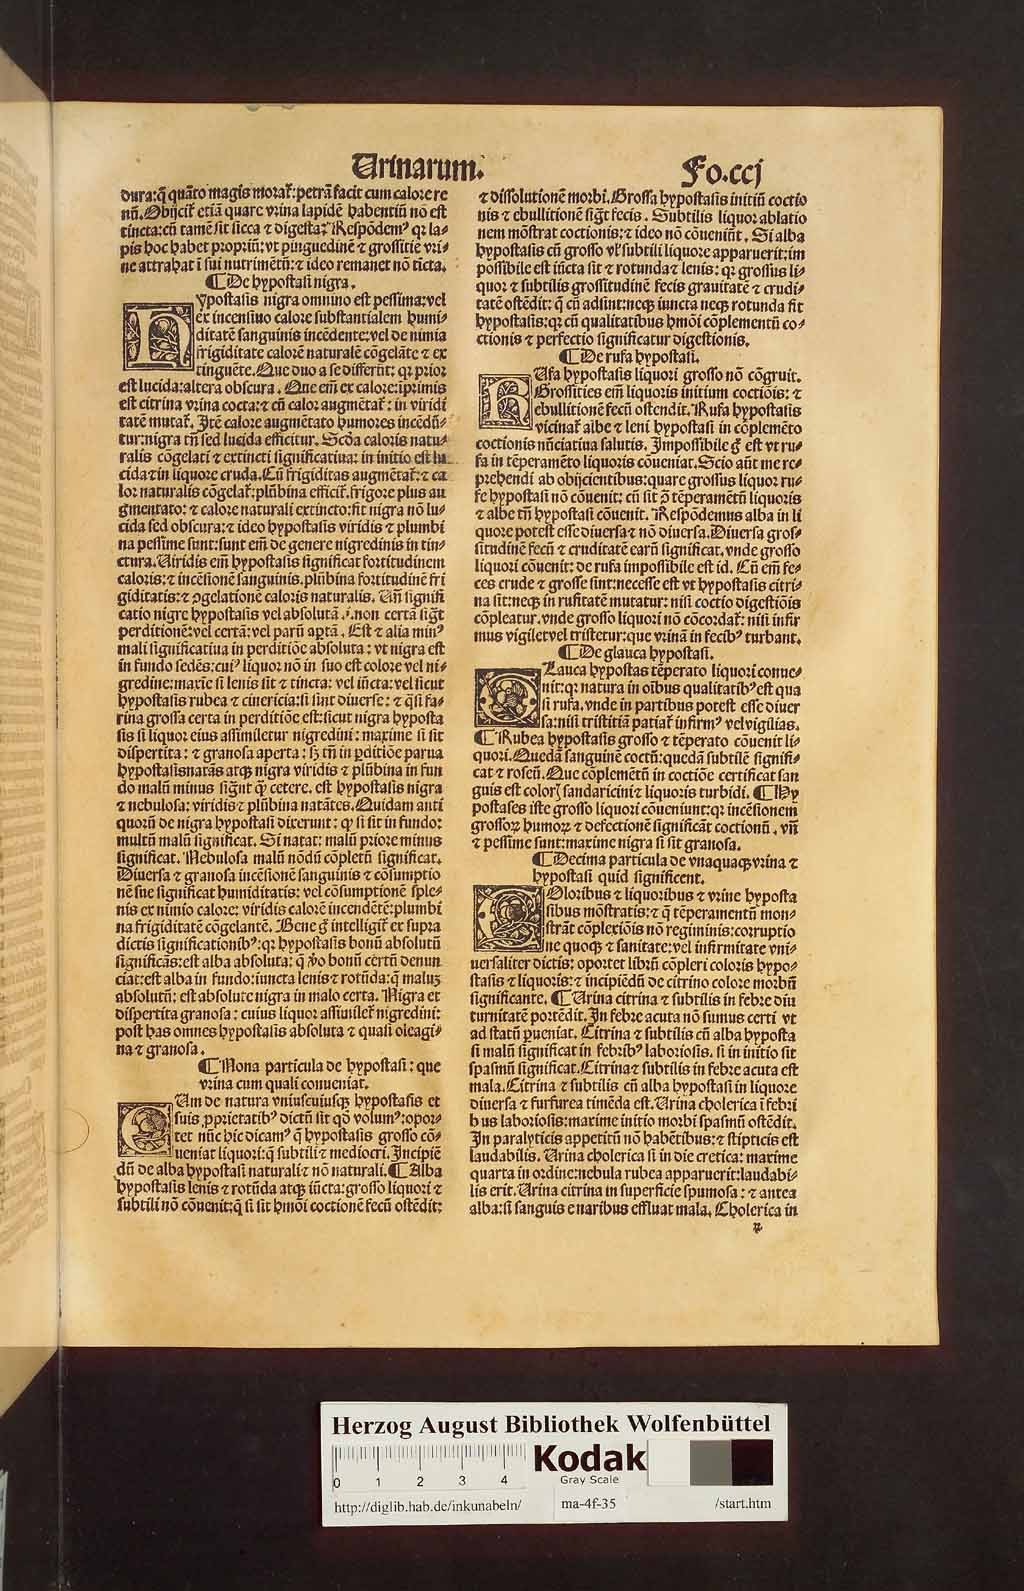 Urinarum.
Fo.ccj
dura:q̃ quãto magis morat᷑:petrã facit cum calore re
nũ.Obijcit᷑ etiã quare vrina lapidẽ habentiũ nõ est
tincta:cũ tamẽ sit sicca ⁊ digesta? Respõdemꝰ qꝛ la⸗
pis hoc habet propriũ:vt pinguedinẽ ⁊ grossitiẽ vri⸗
ne attrahat ĩ sui nutrimẽtũ:⁊ ideo remanet nõ tĩcta.
¶De hypostasi nigra.
HYpostasis nigra omnino est pessima:vel
ex incensiuo calore substantialem humi⸗
ditatẽ sanguinis incẽdente:vel de nimia
frigiditate calorẽ naturalẽ cõgelãte ⁊ ex
tinguẽte.Que duo a se differũt: qꝛ prior
est lucida:altera obscura. Que em̃ ex calore:ĩprimis
est citrina vrina cocta:⁊ cũ calor augmẽtat᷑: in viridi
tatẽ mutat᷑. Itẽ calore augmẽtato humores incẽdũ⸗
tur:nigra tñ sed lucida efficitur. Scd̃a caloris natu⸗
ralis cõgelati ⁊ extincti significatiua: in initio est lu
cida ⁊ in liquore cruda.Cũ frigiditas augmẽtat᷑:⁊ ca
lor naturalis cõgelat᷑:plũbina efficit᷑.frigore plus au
gmentato: ⁊ calore naturali extincto:fit nigra nõ lu⸗
cida sed obscura:⁊ ideo hypostasis viridis ⁊ plumbi
na pessime sunt:sunt em̃ de genere nigredinis in tin⸗
ctura.Viridis em̃ hypostasis significat fortitudinem
caloris:⁊ incẽsionẽ sanguinis.plũbina fortitudinẽ fri
giditatis:⁊ ꝯgelationẽ caloris naturalis. Uñ signifi
catio nigre hypostasis vel absolutã .i.non certã sigt̃
perditionẽ:vel certã:vel parũ aptã. Est ⁊ alia minꝰ
mali significatiua in perditiõe absoluta: vt nigra est
in fundo sedẽs:cuiꝰ liquor nõ in suo est colore vel ni⸗
gredine:maxie si lenis sit ⁊ tincta: vel iũcta:vel sicut
hypostasis rubea ⁊ cinericia:si sint diuerse: ⁊ q̃si fa⸗
rina grossa certa in perditiõe est:sicut nigra hyposta
sis si liquor eius assimiletur nigredini: maxime si sit
dispertita: ⁊ granosa aperta: sꝫ tñ in ꝑditiõe parua
hypostasis natãs atqꝫ nigra viridis ⁊ plũbina in fun
do malũ minus signt̃ q̃ cetere. est hypostasis nigra
⁊ nebulosa: viridis ⁊ plũbina natãtes.Quidam anti
quorũ de nigra hypostasi dixerunt: ꝙ si sit in fundo:
multũ malũ significat. Si natat: malũ priore minus
significat. Nebulosa malũ nõdũ cõpletũ significat.
Diuersa ⁊ granosa incẽsionẽ sanguinis ⁊ cõsumptio
nẽ sue significat humiditatis: vel cõsumptionẽ sple⸗
nis ex nimio calore: viridis calorẽ incendẽtẽ:plumbi
na frigiditatẽ cõgelante. Bene g̊ intelligit᷑ ex supra
dictis significationibꝰ: qꝛ hypostasis bonũ absolutũ
significãs:est alba absoluta: q̃ ṽo bonũ certũ denun
ciat:est alba in fundo:iuncta lenis ⁊ rotũda:q̃ maluꝫ
absolutũ: est absolute nigra in malo certa. Nigra et
dispertita granosa: cuius liquor assimilet᷑ nigredini:
post has omnes hypostasis absoluta ⁊ quasi oleagi⸗
na ⁊ granosa.
¶Nona particula de hypostasi: que
vrina cum quali conueniat.
CUm de natura vniuscuiusqꝫ hypostasis et
suis ꝓprietatibꝰ dictũ sit qd̃ volumꝰ:opor⸗
tet nũc hic dicamꝰ q̃ hypostasis grosso cõ⸗
ueniat liquori:q̃ subtili ⁊ mediocri. Incipiẽ
dũ de alba hypostasi naturali ⁊ nõ naturali.¶Alba
hypostasis lenis ⁊ rotũda atqꝫ iũcta:grosso liquori ⁊
subtili nõ cõuenit:q̃ si sit hmõi coctionẽ fecũ ostẽdit:
⁊ dissolutionẽ morbi.Grossa hypostasis initiũ coctio
nis ⁊ ebullitionẽ sigt̃ fecis. Subtilis liquor ablatio
nem mõstrat coctionis:⁊ ideo nõ cõueniũt. Si alba
hypostasis cũ grosso vl̃ subtili liquore apparuerit:im
possibile est iũcta sit ⁊ rotunda ⁊ lenis: qꝛ grossus li⸗
quor ⁊ subtilis grossitudinẽ fecis grauitatẽ ⁊ crudi⸗
tatẽ ostẽdit: q̃ cũ adsint:neqꝫ iuncta neqꝫ rotunda fit
hypostasis:qꝛ cũ qualitatibus hmõi cõplementũ co⸗
ctionis ⁊ perfectio significatur digestionis.
¶De rufa hypostasi.
RUfa hypostasis liquori grosso nõ cõgruit.
Grossities em̃ liquoris initium coctiõis: ⁊
ebullitionẽ fecũ ostendit. Rufa hypostasis
vicinat᷑ albe ⁊ leni hypostasi in cõplemẽto
coctionis nũciatiua salutis. Impossibile g̊ est vt ru⸗
fa in tẽperamẽto liquoris cõueniat.Scio aũt me re⸗
prehendi ab obijcientibus:quare grossus liquor ru⸗
fe hypostasi nõ cõuenit: cũ sit p̃ tẽperamẽtũ liquoris
⁊ albe tñ hypostasi cõuenit. Respõdemus alba in li
quore potest esse diuersa ⁊ nõ diuersa.Diuersa gros⸗
situdinẽ fecũ ⁊ cruditatẽ earũ significat.vnde grosso
liquori cõuenit: de rufa impossibile est id. Cũ em̃ fe⸗
ces crude ⁊ grosse sint:necesse est vt hypostasis citri⸗
na sit:neqꝫ in rufitatẽ mutatur: nisi coctio digestiõis
cõpleatur.vnde grosso liquori nõ cõcordat᷑: nisi infir
mus vigilet vel tristetur:que vrinã in fecibꝰ turbant.
¶De glauca hypostasi.
GLauca hypostas tẽperato liquori conue⸗
nit:qꝛ natura in oĩbus qualitatibꝰ est qua
si rufa.vnde in partibus potest esse diuer
sa:nisi tristitiã patiat᷑ infirmꝰ vel vigilias.
¶Rubea hypostasis grosso ⁊ tẽperato cõuenit li⸗
quori.Quedã sanguinẽ coctũ:quedã subtilẽ signifi⸗
cat ⁊ roseũ.Que cõplemẽtũ in coctiõe certificat san
guis est coloris sandaricini ⁊ liquoris turbidi. ¶Hy
postases iste grosso liquori cõueniunt:qꝛ incẽsionem
grossoꝝ humoꝝ ⁊ defectionẽ significãt coctionũ. vñ
⁊ pessime sunt:maxime nigra si sit granosa.
¶Decima particula de vnaquaqꝫ vrina ⁊
hypostasi quid significent.
COloribus ⁊ liquoribus ⁊ vrine hyposta
sibus mõstratis:⁊ q̃ tẽperamentũ mon⸗
strãt cõplexiõis nõ regiminis:corruptio
ne quoqꝫ ⁊ sanitate:vel infirmitate vni⸗
uersaliter dictis: oportet librũ cõpleri coloris hypo⸗
stasis ⁊ liquoris:⁊ incipiẽdũ de citrino colore morbũ
significante. ¶Urina citrina ⁊ subtilis in febre diu
turnitatẽ portẽdit. In febre acuta nõ sumus certi vt
ad statũ ꝑueniat. Citrina ⁊ subtilis cũ alba hyposta
si malũ significat in febribꝰ laboriosis. si in initio sit
spasmũ significat.Citrina ⁊ subtilis in febre acuta est
mala.Citrina ⁊ subtilis cũ alba hypostasi in liquore
diuersa ⁊ furfurea timẽda est.Urina cholerica ĩ febri
bus laboriosis:maxime initio morbi spasmũ ostẽdit.
In paralyticis appetitũ nõ habẽtibus:⁊ stipticis est
laudabilis. Urina cholerica si in die cretica: maxime
quarta in ordine:nebula rubea apparuerit:laudabi⸗
lis erit.Urina citrina in superficie spumosa: ⁊ antea
alba:si sanguis e naribus effluat mala. Cholerica in
Herzog August Bibliothek Wolfenbüttel
0 1 2 3 4
Kodak
Gray Scale
http://diglib.hab.de/inkunabeln/
ma-4f-35
/start.htm